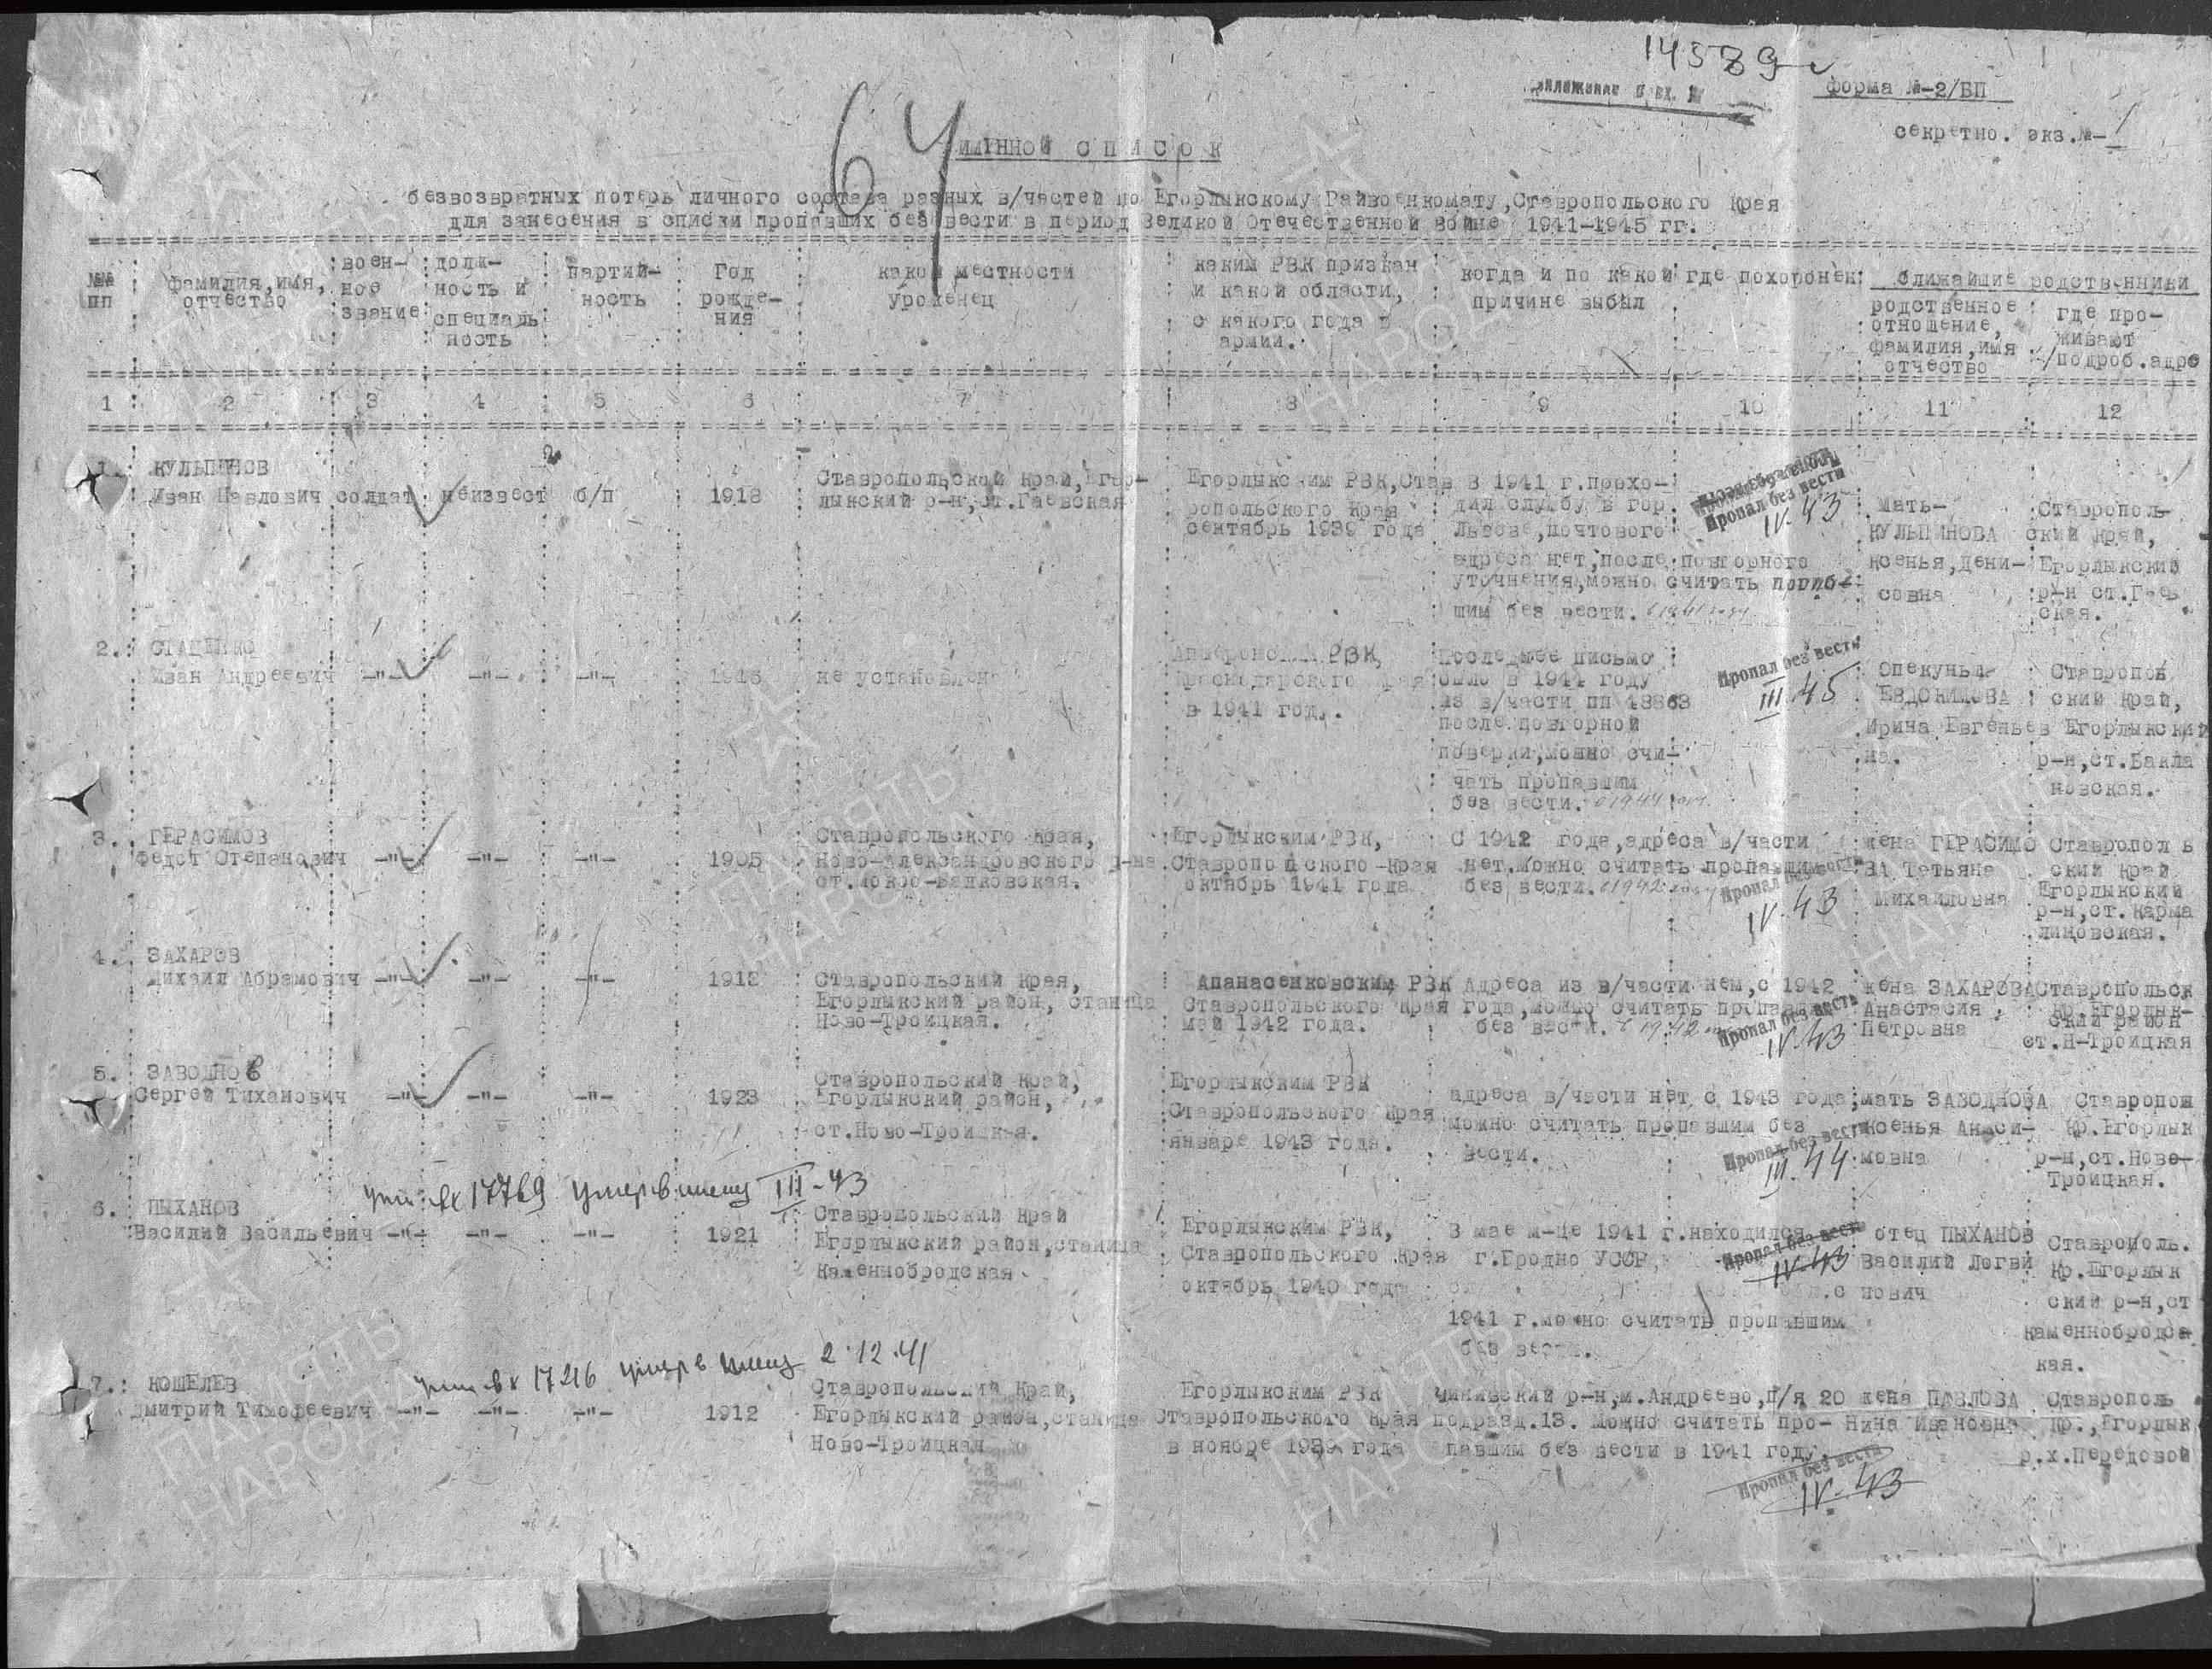 14589
форма №-2/БП
секретно. экз.№-1
64
ИМЕННОЙ СПИСОК
безвозвратных потерь личного состава разных в/частей по Егорлыкскому Райвоенкомату, Ставропольского Края
для занесения в списки пропавших без вести в период Великой Отечественной войне 1941-1945 гг.
№№ пп
фамилия, имя, отчество
воен- ное звание
долж- ность и специаль ность
партий- ность
Год рожде- ния
какой местности уроженец
каким РВК призван и какой области, с какого года в армии.
когда и по какой причине выбыл
где похоронен
ближайшие родственники
родственное отношение, фамилия, имя отчество
где про- живают /подроб. адре
1 2 3 4 5 6 7 8 9 10 11 12
1. КУЛЬПИНОВ
Иван Павлович солдат неизвест б/п 1918
Ставропольский Край, Егор-
лыкский р-н, ст.Гаевская
Егорлыкским РВК, Став
ропольского Края
сентябрь 1939 года
В 1941 г.прохо-
дил службу в гор.
Львове, почтового
адреса нет, после повторного
уточнения, можно считать
шим без вести.
Пропал без вести
IV.43
Мать-
КУЛЬПИНОВА
Ксенья, Дени-
совна
Ставрополь-
ский Край,
Егорлыкский
р-н ст.Гаев
ская.
2. СТАЦЕНКО
Иван Андреевич -"- -"- -"- 1918
не установлено
РВК,
Краснодарского Края
в 1941 год.
Последнее письмо
было в 1944 году
из в/части пп 43863
после повторной
поверки, можно счи-
чать пропавшим
без вести. с 1944
Пропал без вести
III.45
Опекунья-
ЕВДОКИМОВА
Ирина Евгеньев
на.
Ставропол
ский Край,
Егорлыкский
р-н, ст.Бакла
новская.
3. ГЕРАСИМОВ
Федот Степанович -"- -"- -"- 1905
Ставропольского Края,
Ново-Александровского р-на
ст.Мокро-Балковская.
Егорлыкским РВК,
Ставропольского Края
октябрь 1941 года
С 1942 года, адреса в/части
нет. Можно считать пропавшим
без вести. с 1942 году
Пропал без вести
IV.43
жена ГЕРАСИМО
ВА Татьяна
Михайловна
Ставропол в
ский Край
Егорлыкский
р-н, ст. Карма
линовская.
4. ЗАХАРОВ
Михаил Абрамович -"- -"- -"- 1912
Ставропольский Края,
Егорлыкский район, станица
Ново-Троицкая.
Апанасенковским РВК
Ставропольского Края
май 1942 года.
Адреса из в/части нем, с 1942
года, можно считать
без вести. с 1942
Пропал без вести
IV.43
жена ЗАХАРОВА
Анастасия
Петровна
Ставропольск
кр.Егорлык-
ский район
ст.Н-Троицкая
5. ЗАВОДНОВ
Сергей Тиханович -"- -"- -"- 1923
Ставропольский Край,
Егорлыкский район,
ст.Ново-Троицкая.
Егорлыкским РВК
Ставропольского Края
январе 1943 года.
адреса в/части нет с 1943 года,
можно считать пропавшим без
вести.
Пропал без вести
III.44
мать ЗАВОДНОВА
Ксенья Аниси-
мовна
Ставропол
Кр.Егорлык
р-н, ст.Ново-
Троицкая.
вх 17769 умер в плену III-43
6. ПЫХАНОВ
Василий Васильевич -"- -"- -"- 1921
Ставропольский Край
Егорлыкский район, станица
Каменнобродская
Егорлыкским РВК,
Ставропольского Края
октябрь 1940 год
В мае м-це 1941 г.находился
г.Гродно УССР,
1941 г.можно считать пропавшим
без вести.
Пропал без вести
IV.43
отец ПЫХАНОВ
Василий Логви
нович
Ставрополь.
Кр.Егорлык
ский р-н, ст
Каменнобродс
кая.
вх 17216 умер в плену 2.12.41
7. КОШЕЛЕВ
Дмитрий Тимофеевич -"- -"- -"- 1912
Ставропольский Край,
Егорлыкский района, станица
Ново-Троицкая
Егорлыкским РВК
Ставропольского Края
в ноябре 1939 года
р-н, м.Андреево, П/я 20
подразд.13. Можно считать про-
павшим без вести в 1941 году.
Пропал без вести
IV.43
жена ПАВЛОВА
Нина Ивановна
Ставрополь
Кр., Егорлык
р.х.Передовой
ПАМЯТЬ НАРОДА